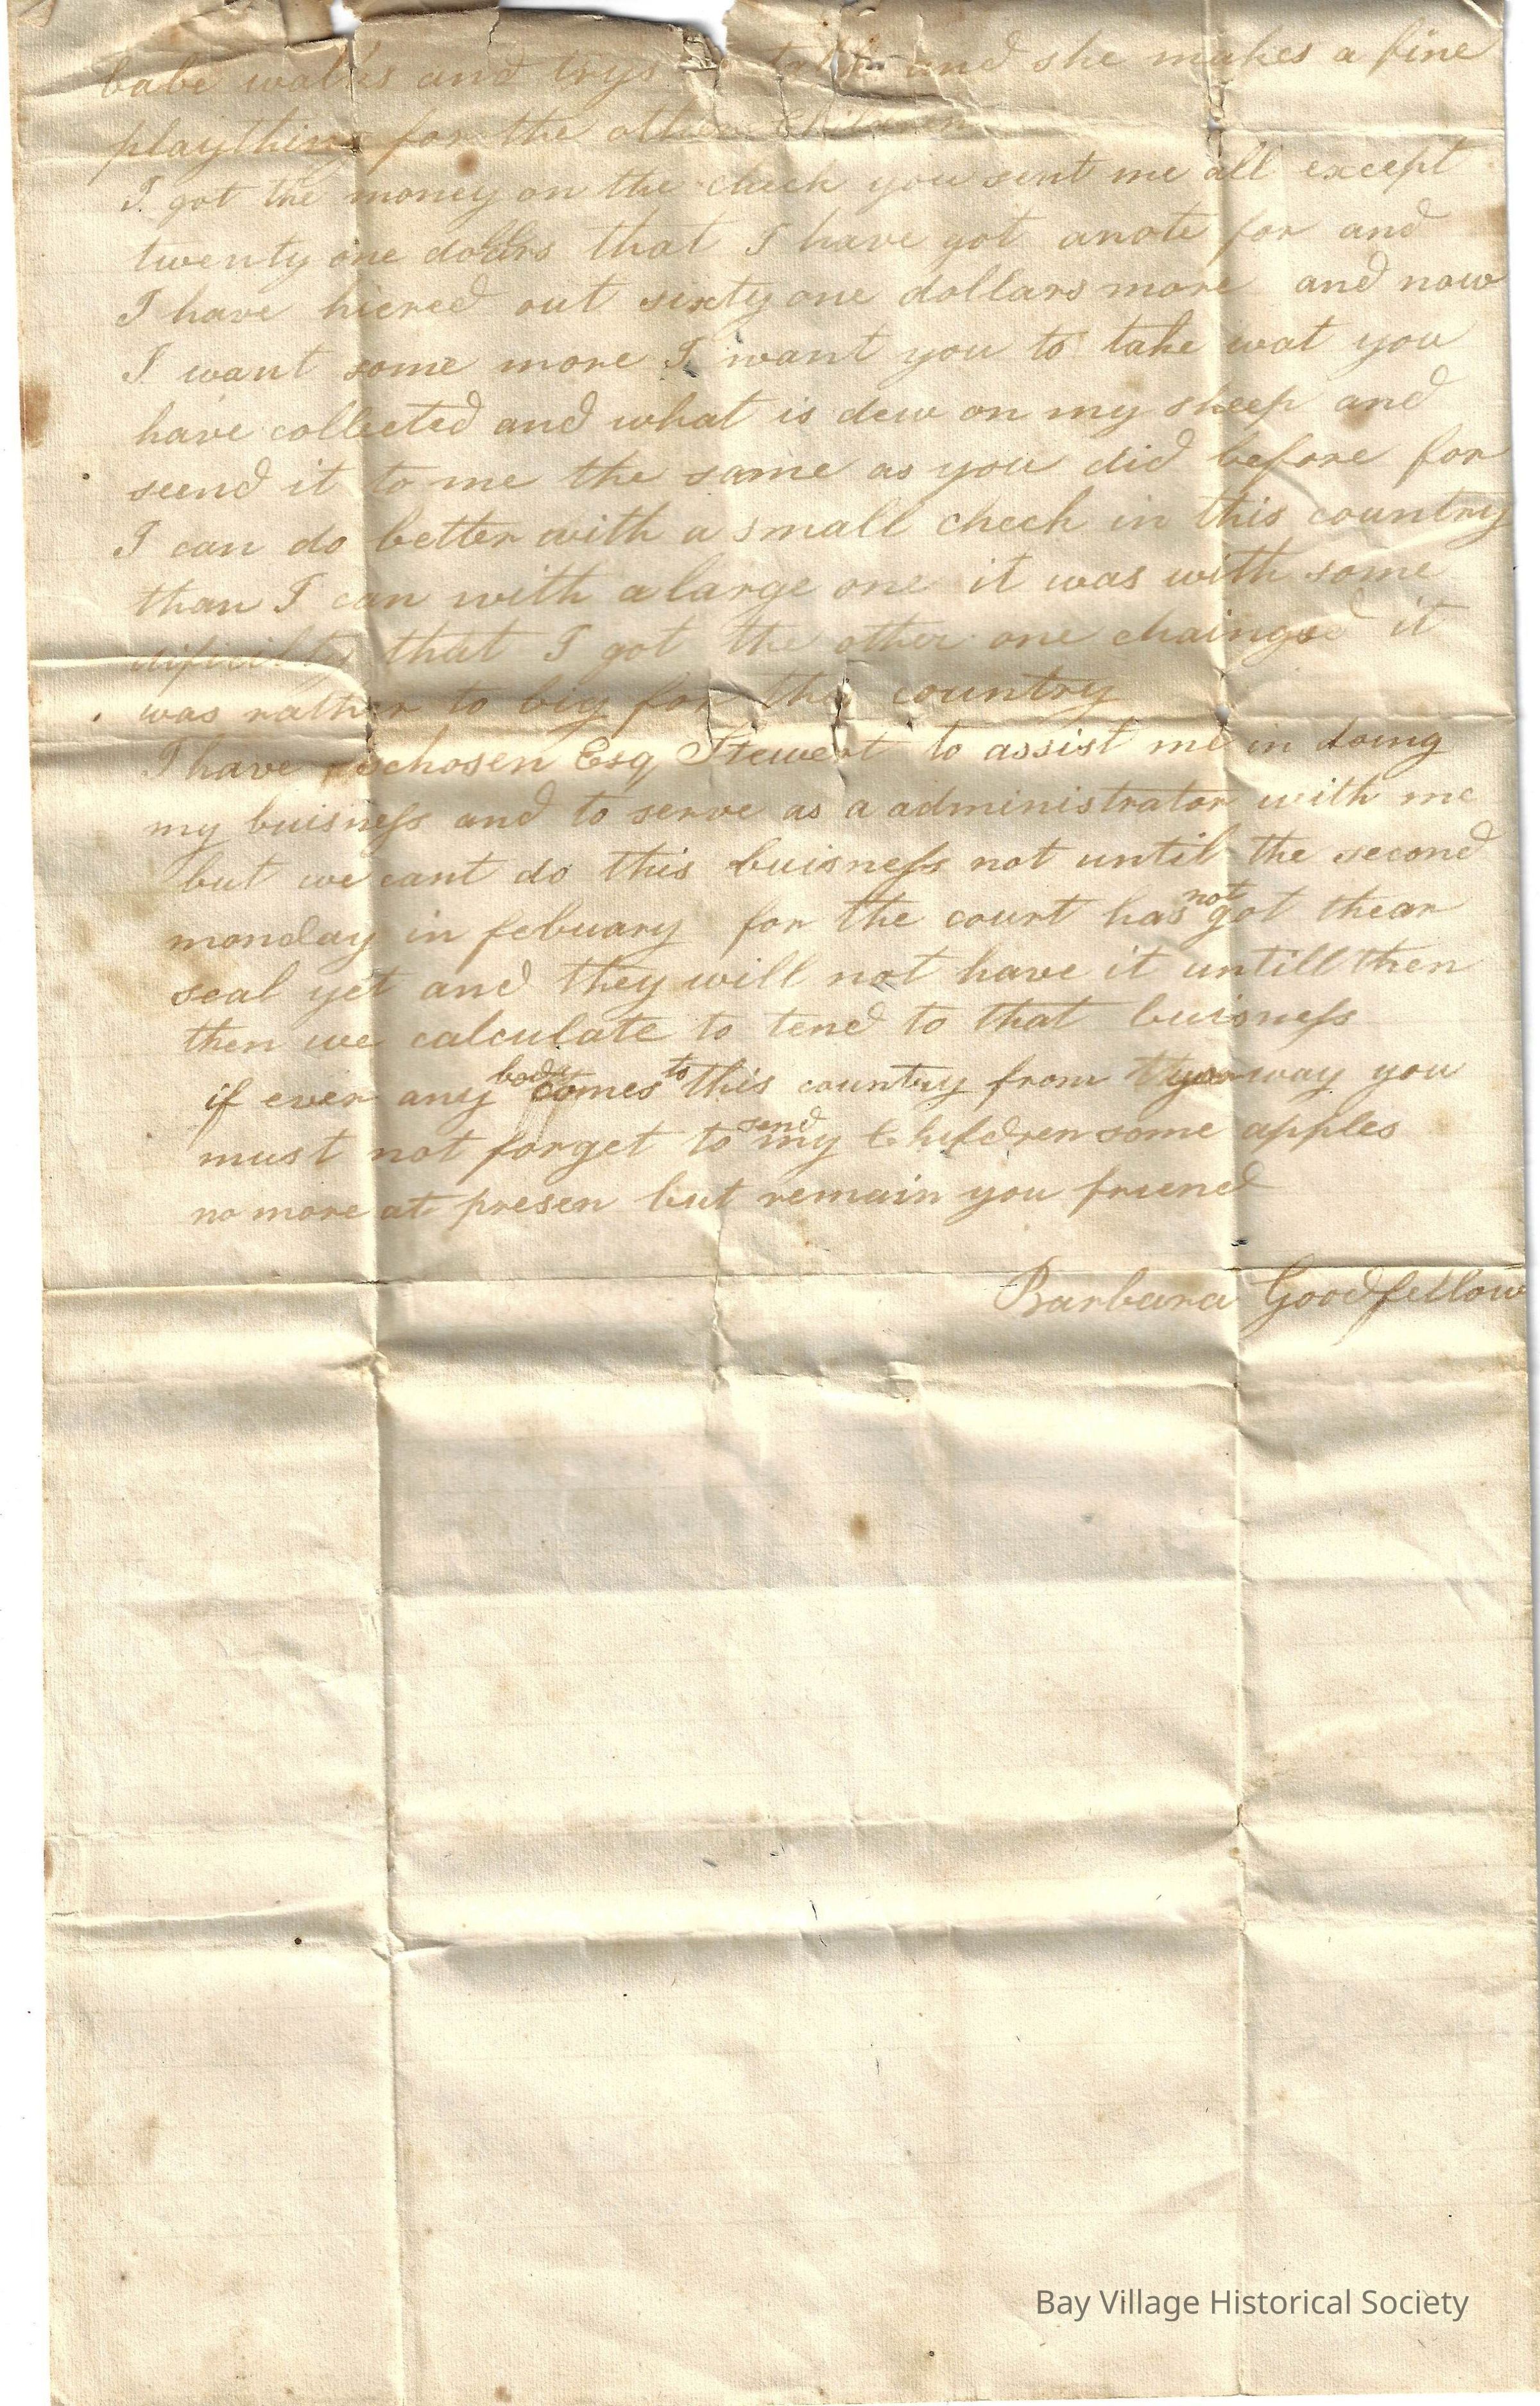 babe walks and trys to talk and she makes a fine
plaything for the other children
I got the money on the check you sent me all except
twenty one dollars that I have got anote for and
I have hiered out sixty one dollars more and now
I want some more I want you to take wat you
have collected and what is dew on my sheep and
seend it to me the same as you did before for
I can do better with a small check in this country
than I can with a large one it was with some
dificilty that I got the other one chainged it
was rather to big for this country
I have chosen Esq Stewert to assist me in doing
my buisness and to serve as a administrator with me
but we cant do this buisness not until the second
monday in febuary for the court has not got thear
seal yet and they will not have it untill then
then we calculate to tend to that buisness
if ever any body comes to this country from way you
must not forget to send my Children some apples
no more at presen but remain you friend
Barbara Goodfellow
Bay Village Historical Society